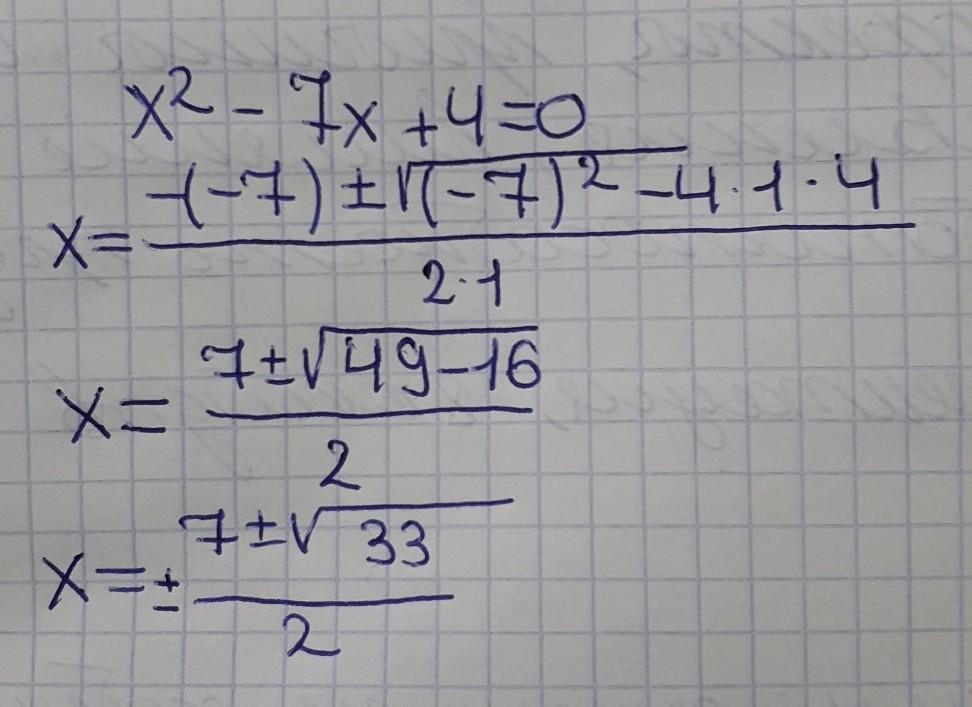 x² - 7x + 4 = 0
x = \frac{-(-7) ± \sqrt{(-7)² - 4 · 1 · 4}}{2 · 1}
x = \frac{7 ± \sqrt{49 - 16}}{2}
x = ± \frac{7 ± \sqrt{33}}{2}